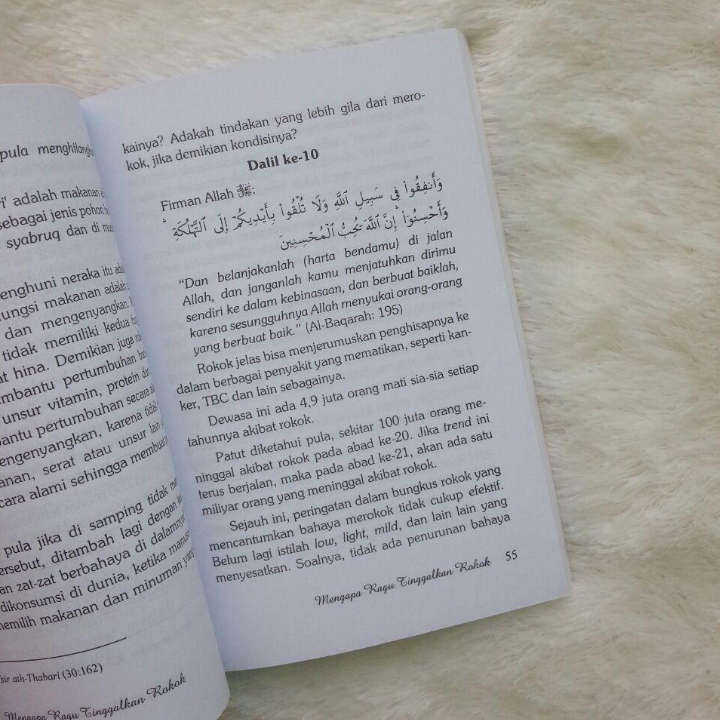 pula menghilang
' adalah makanan
sebagai jenis pohon
syabruq dan di
enghuni neraka itu
ungsi makanan adalah
dan mengenyangkan.
tidak memiliki kedua
at hina. Demikian juga
mbantu pertumbuhan
unsur vitamin, protein
bantu pertumbuhan secara
mengenyangkan, karena
anan, serat atau unsur
cara alami sehingga membuat
pula jika di samping tidak
ersebut, ditambah lagi dengan
an zat-zat berbahaya di dalamnya
dikonsumsi di dunia, ketika
memilih makanan dan minuman yang
sir ath-Thabari (30:162)
Mengapa Ragu Tinggalkan Rokok
kainya? Adakah tindakan yang lebih gila dari mero-
kok, jika demikian kondisinya?
Dalil ke-10
Firman Allah ﷻ:
وَأَنفِقُوا۟ فِى سَبِيلِ ٱللَّهِ وَلَا تُلْقُوا۟ بِأَيْدِيكُمْ إِلَى ٱلتَّهْلُكَةِ ۛ
وَأَحْسِنُوٓا۟ ۛ إِنَّ ٱللَّهَ يُحِبُّ ٱلْمُحْسِنِينَ
"Dan belanjakanlah (harta bendamu) di jalan
Allah, dan janganlah kamu menjatuhkan dirimu
sendiri ke dalam kebinasaan, dan berbuat baiklah,
karena sesungguhnya Allah menyukai orang-orang
yang berbuat baik." (Al-Baqarah: 195)
Rokok jelas bisa menjerumuskan penghisapnya ke
dalam berbagai penyakit yang mematikan, seperti kan-
ker, TBC dan lain sebagainya.
Dewasa ini ada 4,9 juta orang mati sia-sia setiap
tahunnya akibat rokok.
Patut diketahui pula, sekitar 100 juta orang me-
ninggal akibat rokok pada abad ke-20. Jika trend ini
terus berjalan, maka pada abad ke-21, akan ada satu
miliyar orang yang meninggal akibat rokok.
Sejauh ini, peringatan dalam bungkus rokok yang
mencantumkan bahaya merokok tidak cukup efektif.
Belum lagi istilah low, light, mild, dan lain lain yang
menyesatkan. Soalnya, tidak ada penurunan bahaya
Mengapa Ragu Tinggalkan Rokok 55